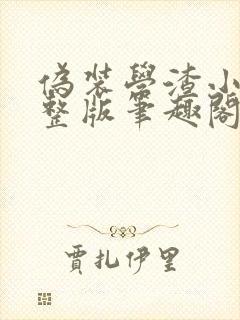 偽裝學渣小
整版筆趣閣
賈扎伊里